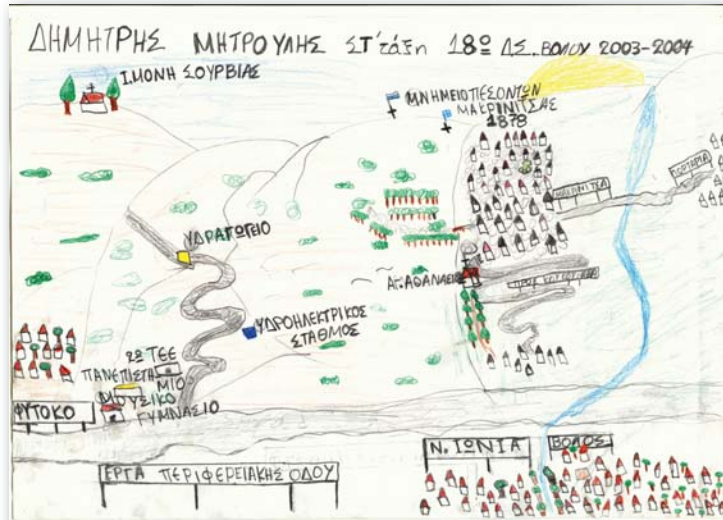 ΔΗΜΗΤΡΗΣ ΜΗΤΡΟΥΛΗΣ ΣΤ΄τάξη 18ο ΔΣ. ΒΟΛΟΥ 2003-2004
Ι.ΜΟΝΗ ΣΟΥΡΒΙΑΣ
ΜΝΗΜΕΙΟ ΠΕΣΟΝΤΩΝ
ΜΑΚΡΙΝΙΤΣΗΣ
1878
ΠΟΡΤΑΡΙΑ
ΥΔΡΑΓΩΓΕΙΟ
ΑΓ.ΑΘΑΝΑΣΙΟΣ
ΥΔΡΟΗΛΕΚΤΡΙΚΟΣ
ΣΤΑΘΜΟΣ
2ο ΤΕΕ
ΠΑΝΕΠΙΣΤΗ
ΜΙΟ
ΜΟΥΣΙΚΟ
ΓΥΜΝΑΣΙΟ
ΦΥΤΟΚΟ
Ν. ΙΩΝΙΑ
ΒΟΛΟΣ
ΕΡΓΑ ΠΕΡΙΦΕΡΕΙΑΚΗΣ ΟΔΟΥ